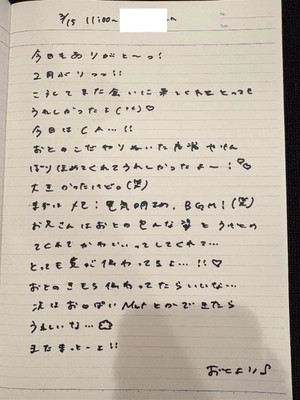 3/15 11:00~
今日もありがと〜っ!
2月ぶりっっ!!
こうしてまた会いに来てくれてとっても
うれしかったよ(^^)♡
今日はCA...!!
おとのこだわりぬいた
ほめてくれてうれしかったよー!♡
大きかったけど。(笑)
まずはメモ!電気明るめ、BGM!(笑)
お兄さんはおとの色んな姿と
てくれてかわいいってしてくれて...
とっても気が伝わってるよ...!!♡
おとのきもち伝わってたらいいな...
次はおっぱい Matとかできたら
うれしいな...
またまってーよ!!
おとより